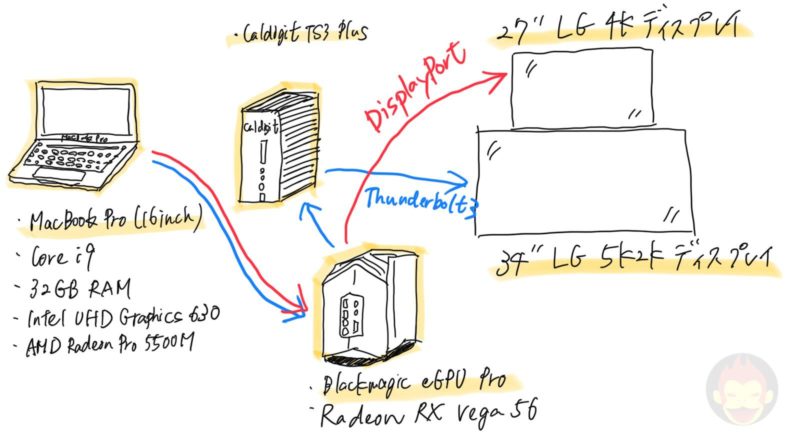 ・Caldigit TS3 Plus
27" LG 4K ディスプレイ
DisplayPort
Caldigit
MacBook Pro
Thunderbolt3
・MacBook Pro (16inch)
・Core i9
・32GB RAM
・Intel UHD Graphics 630
・AMD Radeon Pro 5500M
34" LG 5K2K ディスプレイ
・Blackmagic eGPU Pro
・Radeon RX Vega 56